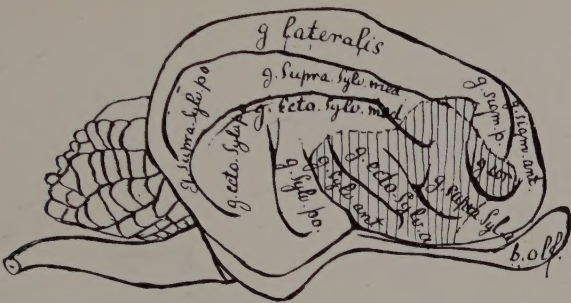 g lateralis
g. Supra. Sylv. med
g. Ecto. Sylv. med
g. Supra. Sylv. po
g. ecto. Sylv. p
g. Sylv. po.
g. Sylv. ant
g. ecto. Sylv. a
g. supra Sylv. a
g. cor.
g. sigm. p.
g. sigm. ant.
b. olf.